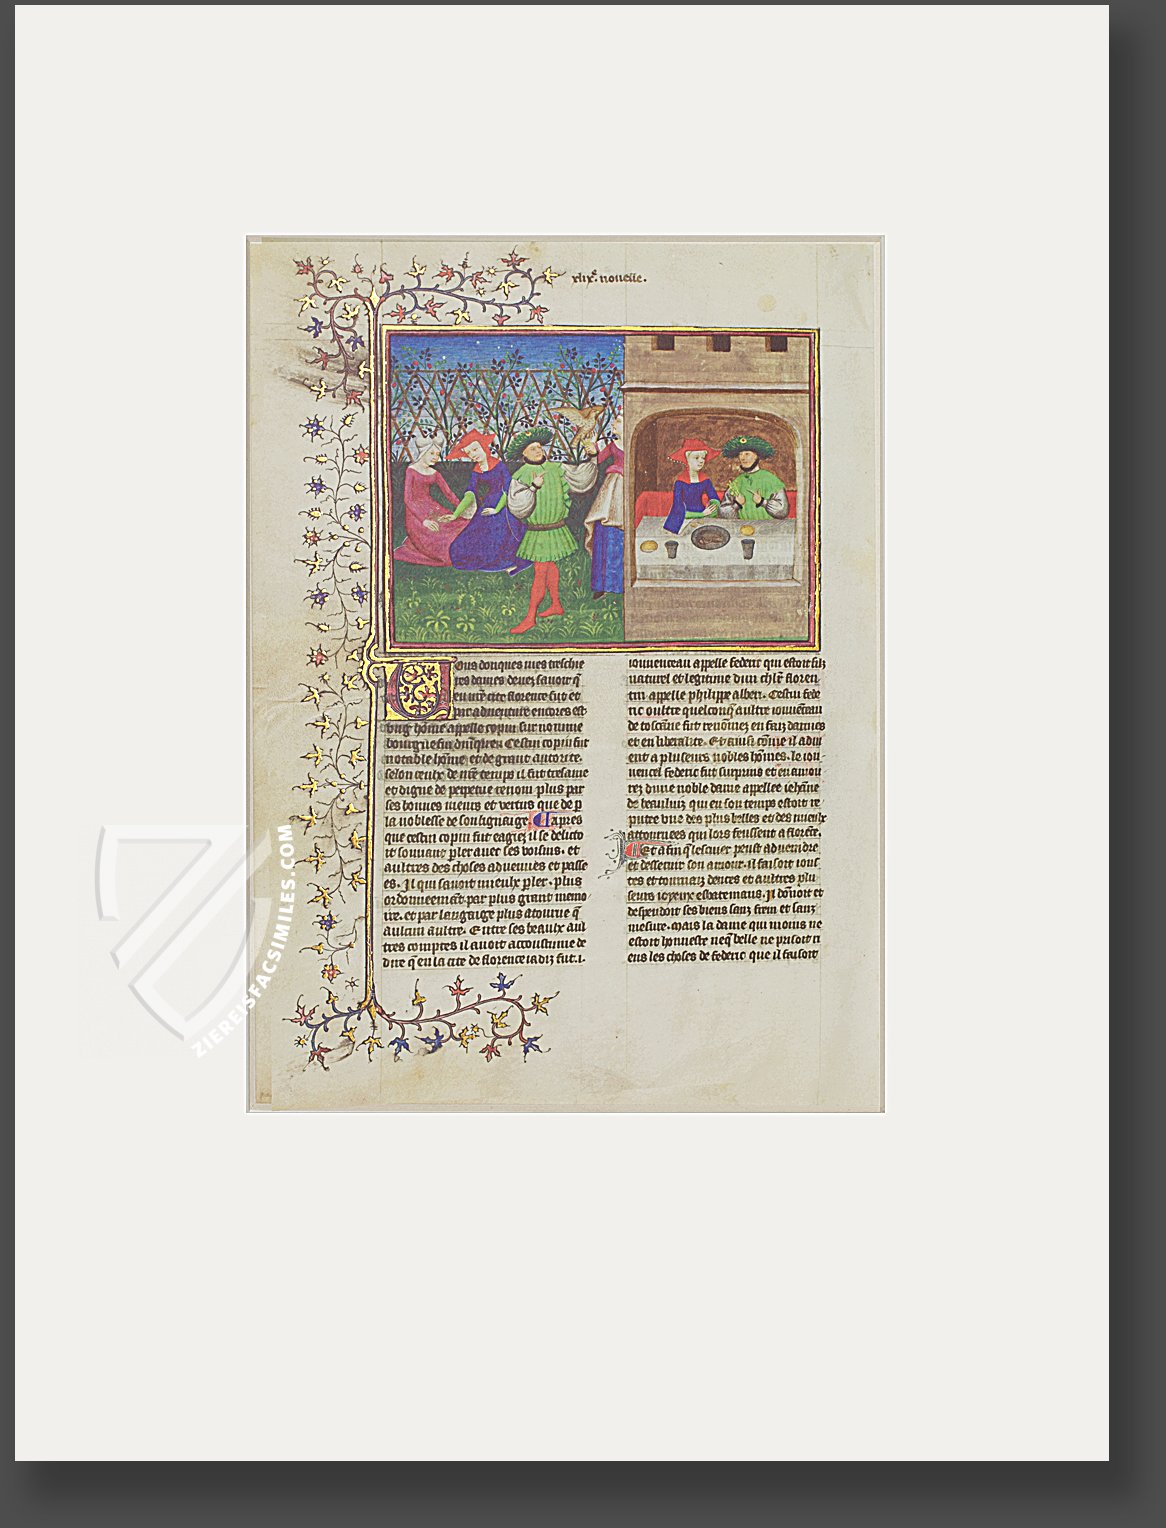 xlix.e nouelle.
Vous donques mes treschie
res dames deuez sauoir q̃
en nr̃e cite florence fut et
par aduenture encores est
vng hõme appelle copin sur nomme
bourguesin
notable hõme et de grant autorite.
selon ceulx de nr̃e temps il fut tresame
et digne de perpetue renom plus par
ses bonnes meurs et vertus que de p
la noblesse de son lignaige Et apres
que cestui copin fut eagiez il se delicto
it souuant p̃ler auec ses voisins. et
aultres des choses aduenues et passe
es. Il qui sauoit mieulx p̃ler. plus
ordonneemẽt. par plus grant memo
ire. et par langaige plus atourne q̃
aulcun aultre. Entre ses beaulx aul
tres comptes il auoit accoustume de
dire q̃ en la cite de florence iadiz fut .i.
iouuenceau appelle federic qui estoit filz
naturel et legitime dun chl̃r floren
tin appelle philippe alberi. Cestui fede
ric oultre quelconq̃ aultre iouuẽceau
de toscane fut renõmez en faiz darmes
et en liberalite. Et ainsi cõme il adui
ent a pluseurs nobles hõmes. le iou
uencel federic fut surprins et en amou
rez dune noble dame appellee iehãne
de beauluiz qui en son temps estoit re
putee vne des plus belles et des mieulx
attournees qui lors feussent a florẽce.
Et a fin q̃ lescuier peust aduendre
et desseruir son amour. il faisoit ious
tes et tournaiz dences et aultres plu
seurs ioyeux esbatemans. Il dõnoit et
despendoit ses biens sanz frein et sanz
mesure. Mais la dame qui moins ne
estoit honneste neq̃ belle ne prisoit ri
ens les choses de federic que il faisoit
ZIEREISFACSIMILES.COM